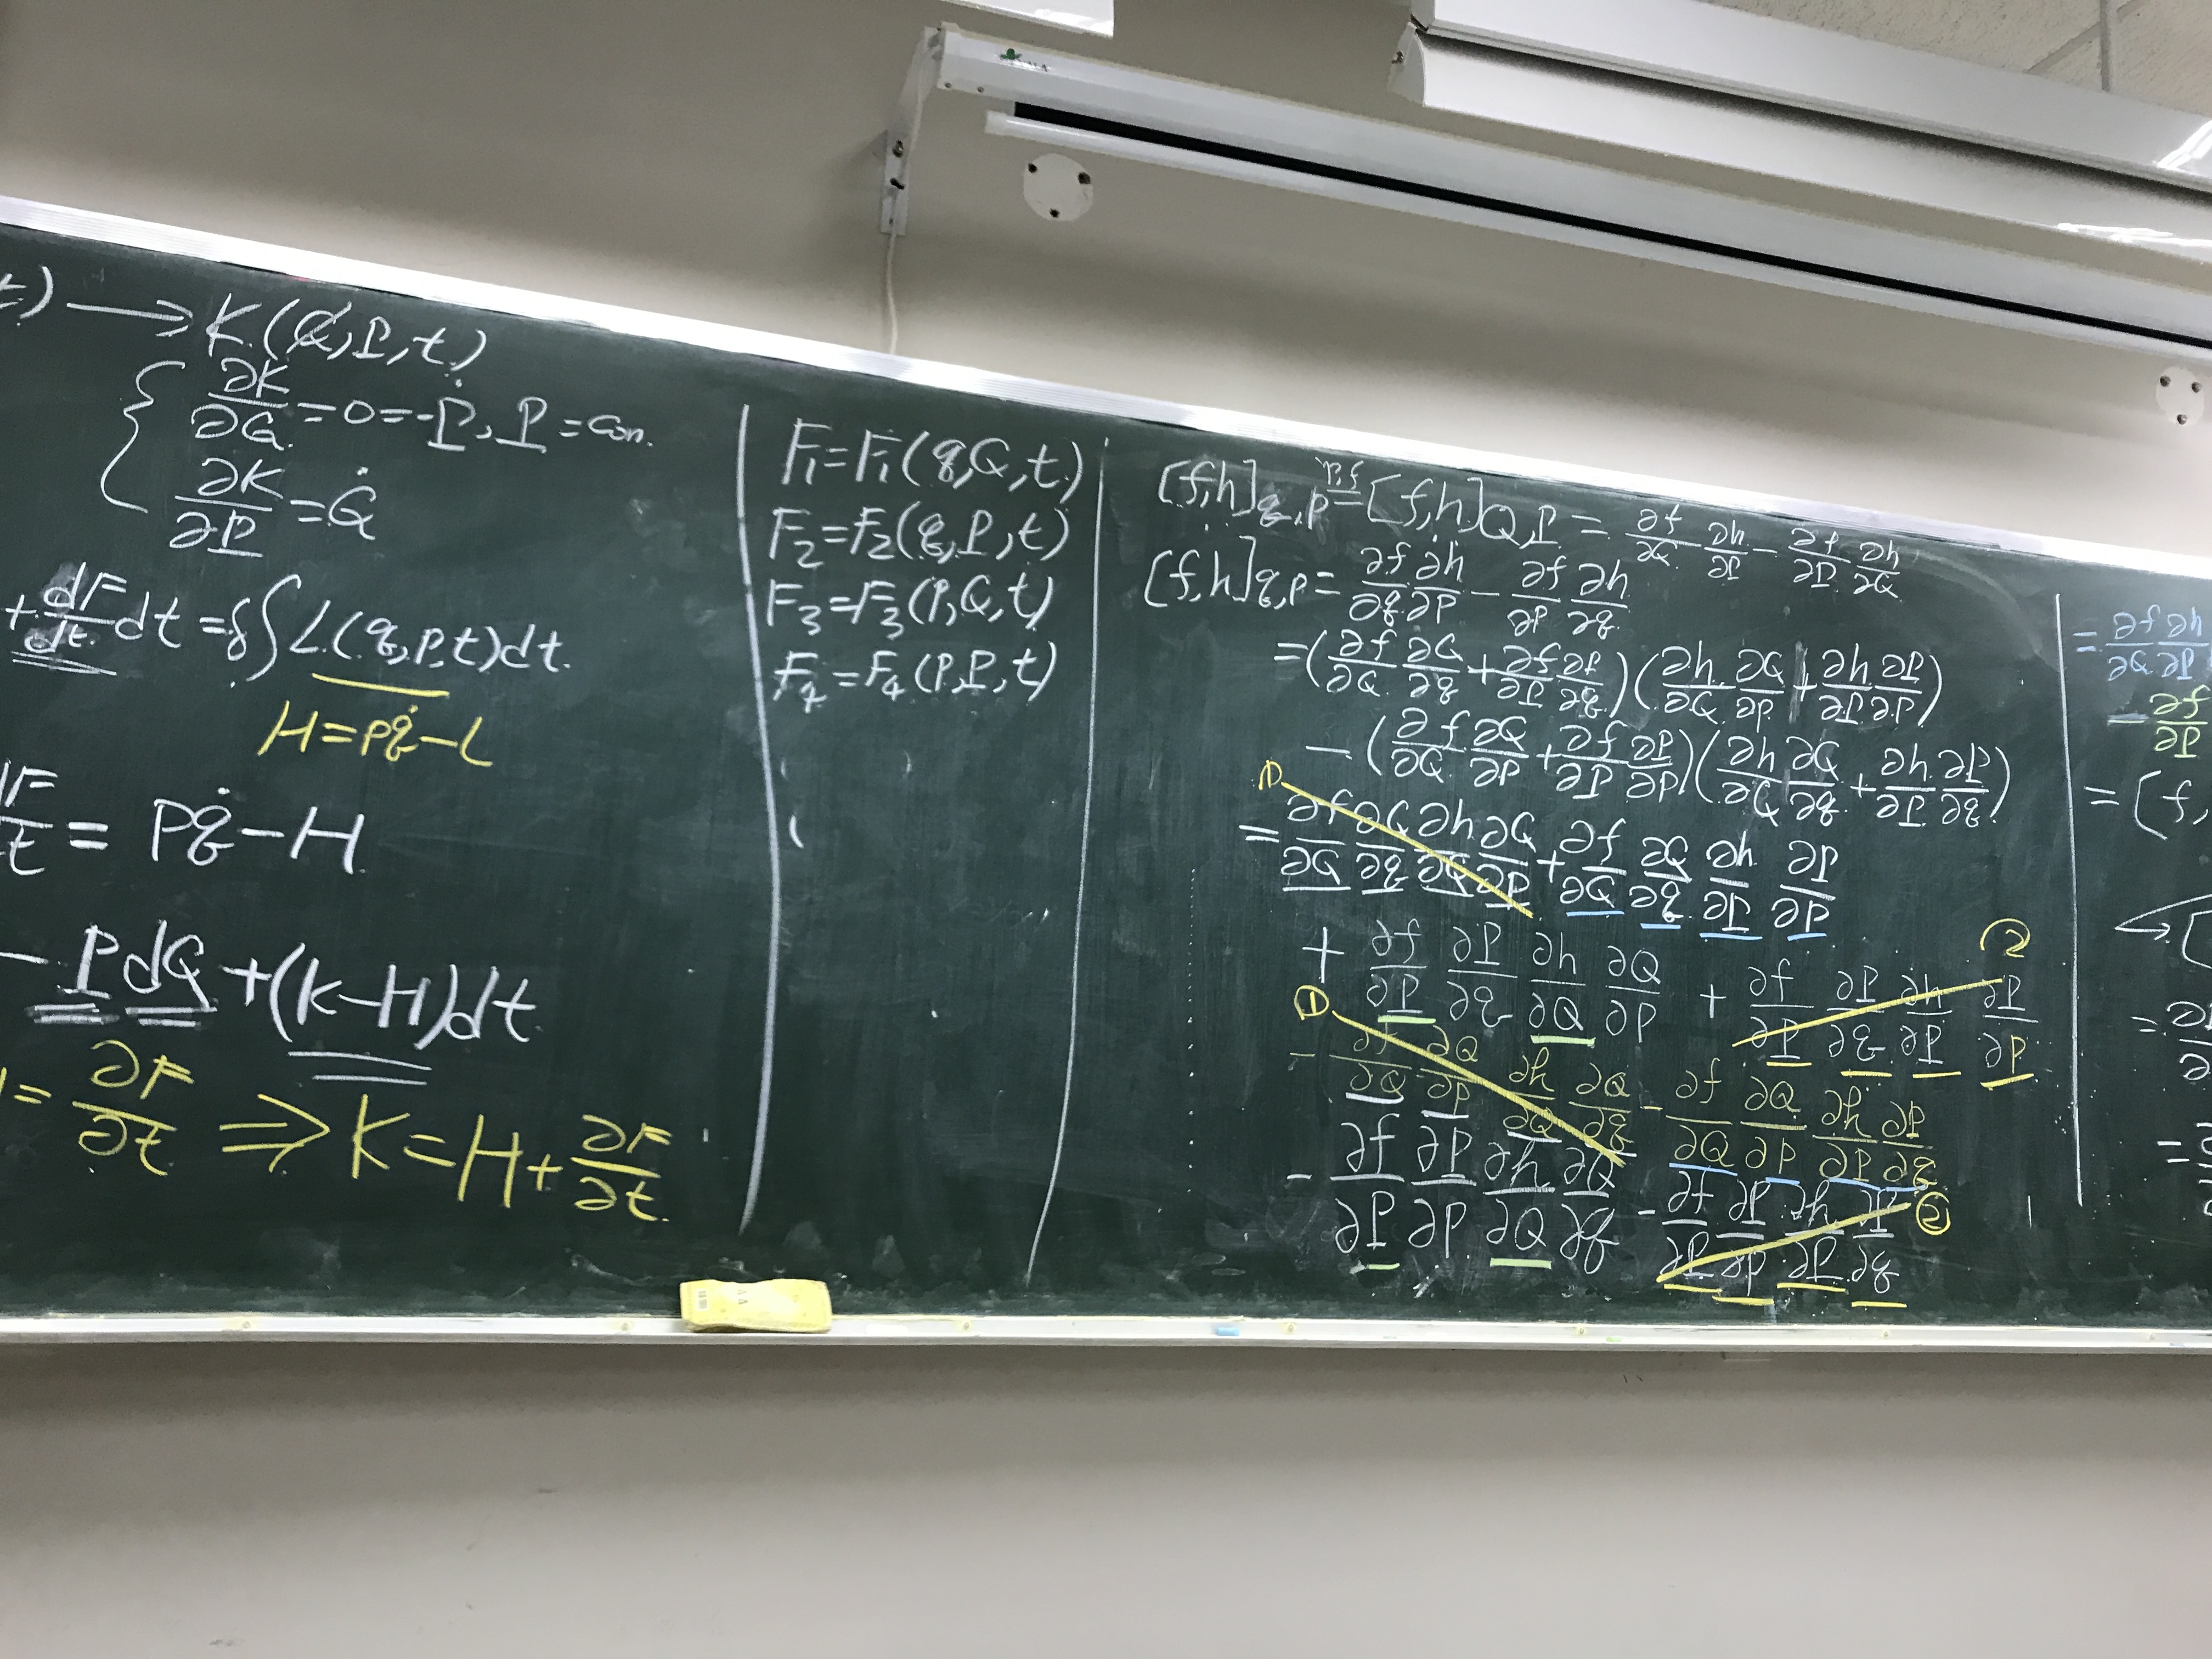 t) ⟶ K(Q,P,t)
{ ∂K/∂Q = 0 = -Ṗ, P = con.
∂K/∂P = Q̇
+ dF/dt dt = δ∫L(q,p,t)dt.
H = pq̇ - L
dF/dt = pq̇ - H
- PdQ + (K-H)dt
= ∂F/∂t ⇒ K = H + ∂F/∂t
F₁ = F₁(q,Q,t)
F₂ = F₂(q,P,t)
F₃ = F₃(p,Q,t)
F₄ = F₄(p,P,t)
[f,h]q,p = [f,h]Q,P = ∂f/∂Q ∂h/∂P - ∂f/∂P ∂h/∂Q
[f,h]q,p = ∂f/∂q ∂h/∂p - ∂f/∂p ∂h/∂q
= (∂f/∂Q ∂Q/∂q + ∂f/∂P ∂P/∂q)(∂h/∂Q ∂Q/∂p + ∂h/∂P ∂P/∂p)
- (∂f/∂Q ∂Q/∂p + ∂f/∂P ∂P/∂p)(∂h/∂Q ∂Q/∂q + ∂h/∂P ∂P/∂q)
①
= ∂f/∂Q ∂Q/∂q ∂h/∂Q ∂Q/∂p + ∂f/∂Q ∂Q/∂q ∂h/∂P ∂P/∂p
+ ∂f/∂P ∂P/∂q ∂h/∂Q ∂Q/∂p + ∂f/∂P ∂P/∂q ∂h/∂P ∂P/∂p ②
① - ∂f/∂Q ∂Q/∂p ∂h/∂Q ∂Q/∂q - ∂f/∂Q ∂Q/∂p ∂h/∂P ∂P/∂q
- ∂f/∂P ∂P/∂p ∂h/∂Q ∂Q/∂q - ∂f/∂P ∂P/∂p ∂h/∂P ∂P/∂q ②
= ∂f/∂Q ∂h/∂P
- ∂f/∂P
= [f,